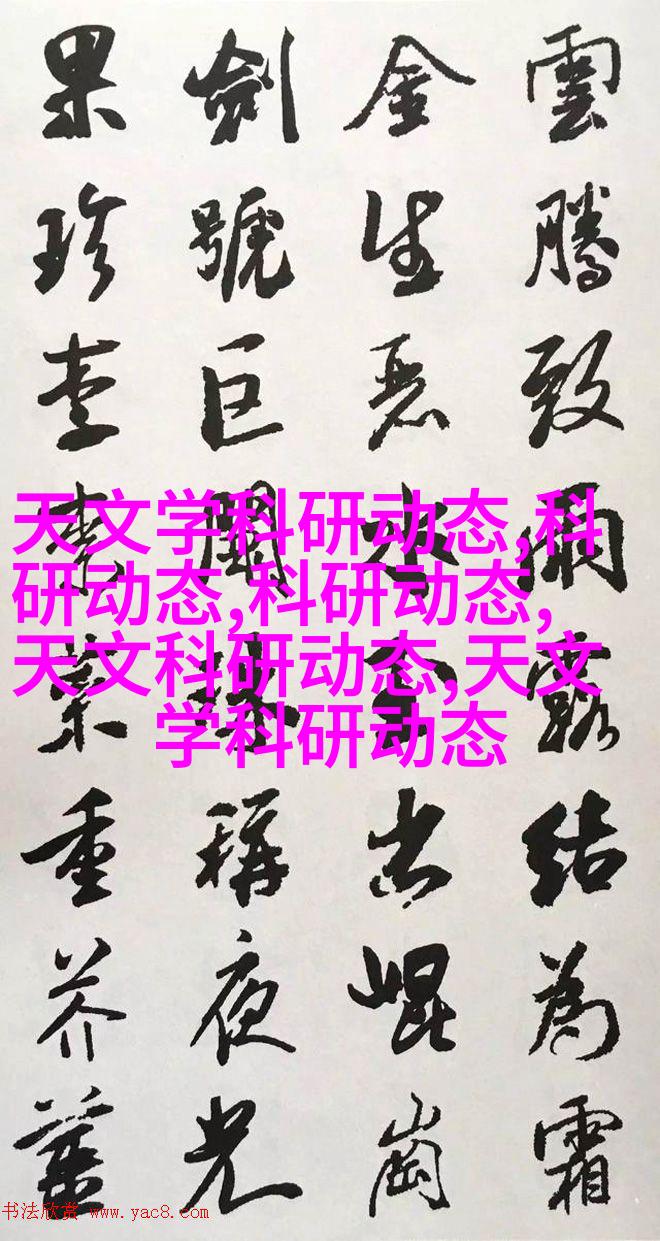 雲騰致雨露結為霜
金生麗水玉出崐崗
劍號巨闕珠稱夜光
果珍李柰菜重芥薑
天文学科研动态,科
研动态,科研动态,
天文科研动态,天文
学科研动态
书法欣赏 www.yac8.com